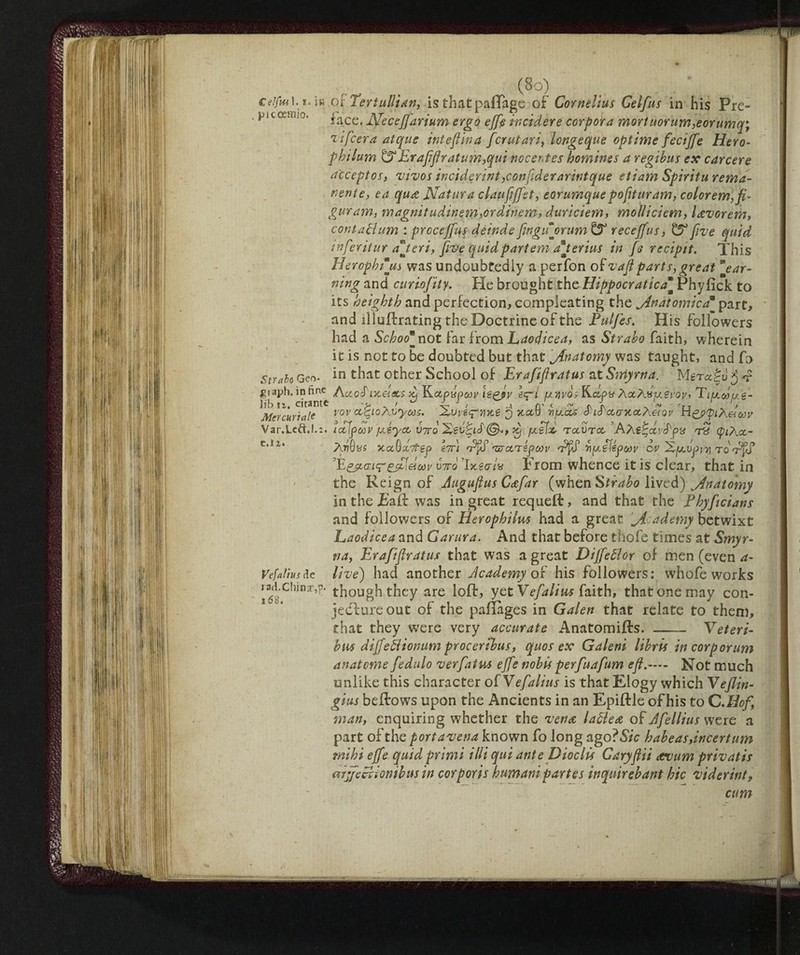 (80)
Celsus l. 1. in of Tertullian, is that passage of Cornelius Celsus in his Pre-
picœmio. face, Necessarium ergo esse incidere corpora mortuorum,eorumq;
viscera atque intestina scrutari, longeque optime fecisse Hero-
philum & Erasistratum,qui nocentes homines a regibus ex carcere
acceptos, vivos inciderint,considerarintque etiam Spiritu rema-
nente, ea quæ Natura clausisset, eorumque posituram, colorem,fi-
guram, magnitudinem,ordinem, duriciem, molliciem, lævorem,
contactum : processus deinde singulorum & recessus, & sive quid
inseritur alteri, sive quid partem alterius in se recipit. This
Herophilus was undoubtedly a person of vast parts, great lear-
ning and curiosity. He brought the Hippocratical Physick to
its heighth and perfection, compleating the Anatomical part,
and illustrating the Doctrine of the Pulses. His followers
had a School not far from Laodicea, as Strabo saith, wherein
it is not to be doubted but that Anatomy was taught, and so
Strabo Geo- in that other School of Erasistratus at Smyrna. Μεταξὺ ᵹ τ
graph. in fine Λαοδικείας ϗ Καρύρων ἱερόν ἐςι μηνὸς Κάρυ λαλύμενον, Τιμώμε-
lib 12. citante
Mercuriale νον ἀξιολύγως. Συνέςηκε ᵹ καθ᾽ ἡμᾶς διδασκαλεῖον Ἡροφιλείων
Var.Lect.l.2. ἰατρῶν μέγα ὑπὸ Ζεύξιδ@, ϗ μετὰ ταῦτα Ἀλεξάνδρυ τῦ φιλα-
c.12. λήθυς καθάπερ ἐπὶ τῶν πατέρων τῶν ἡμετέρων ἐν Σμύρνῃ τὸ τῶν
Ἐρασιςρατείων ὑπὸ Ἱκεσίυ From whence it is clear, that in
the Reign of Augustus Cæsar (when Strabo lived) Anatomy
in the East was in great request, and that the Physicians
and followers of Herophilus had a great Academy betwixt
Laodicea and Garura. And that before those times at Smyr-
na, Erasistratus that was a great Dissector of men (even a-
Vesalius de live) had another Academy of his followers: whose works
rad.Chinæ,p. though they are lost, yet Vesalius saith, that one may con-
168. jecture out of the passages in Galen that relate to them,
that they were very accurate Anatomists. —— Veteri-
bus dissectionum proceribus, quos ex Galeni libris in corporum
anatome sedulo versatus esse nobis persuasum est.---- Not much
unlike this character of Vesalius is that Elogy which Veslin-
gius bestows upon the Ancients in an Epistle of his to C.Hof-
man, enquiring whether the venæ lacteæ of Asellius were a
part of the porta vena known so long ago? Sic habeas,incertum
mihi esse quid primi illi qui ante Dioclis Carystii ævum privatis
dissectionibus in corporis humani partes inquirebant hic viderint,
cum